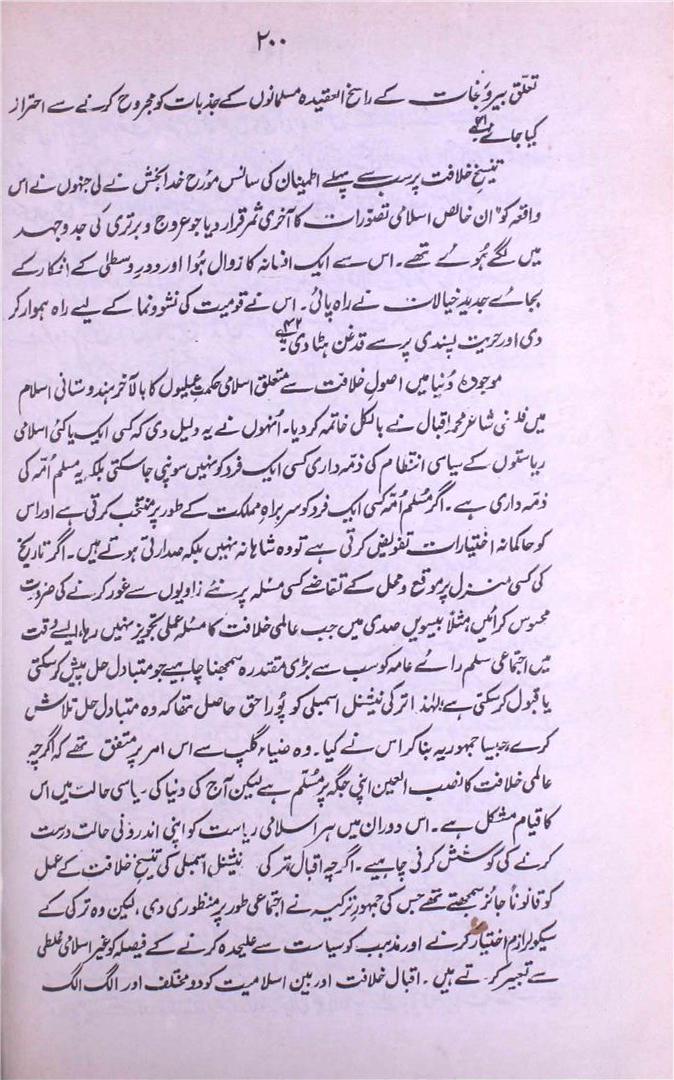 ۲۰۰
تعلّق بیرونجات کے راسخ العقیدہ مسلمانوں کے جذبات کو مجروح کرنے سے احتراز
کیا جائے۔۴۱
تنسیخِ خلافت پر سب سے پہلے اطمینان کی سانس مؤرخ خدا بخش نے لی جنہوں نے اس
واقعہ کو "ان خالص اسلامی تصوّرات کا آخری ثمر قرار دیا جو عروج و برتری کی جدوجہد
میں لگے ہُوئے تھے۔ اس سے ایک افسانہ کا زوال ہُوا اور دورِ وسطیٰ کے افکار کے
بجائے جدید خیالات نے راہ پائی۔ اس نے قومیت کی نشوونما کے لیے راہ ہموار کر
دی اور حریت پسندی پر سے قدغن ہٹا دی۔۴۲
موجودہ دُنیا میں اصولِ خلافت سے متعلق اسلامی حکمتِ عملیوں کا بالآخر ہندوستانی اسلام
میں فلسفی شاعر محمد اقبال نے بالکل خاتمہ کر دیا۔ اُنہوں نے یہ دلیل دی کہ کسی ایک یا کئی اسلامی
ریاستوں کے سیاسی انتظام کی ذمّہ داری کسی ایک فرد کو نہیں سونپی جا سکتی بلکہ یہ مسلم اُمّہ کی
ذمّہ داری ہے۔ اگر مُسلم اُمّہ کسی ایک فرد کو سربراہِ مملکت کے طور پر منتخب کرتی ہے اور اس
کو حاکمانہ اختیارات تفویض کرتی ہے تو وہ شاہانہ نہیں بلکہ صدارتی ہوتے ہیں۔ اگر تاریخ
کی کسی منزل پر موقع و محل کے تقاضے کسی مسئلہ پر نئے زاویوں سے غور کرنے کی ضرورت
محسوس کرائیں، مثلاً بیسویں صدی میں جب عالمی خلافت کا مسئلہ عملی تجویز نہیں رہا، ایسے وقت
میں اجتماعی مسلم رائے عامہ کو سب سے بڑی مقتدرہ سمجھنا چاہیے جو متبادل حل پیش کر سکتی
یا قبول کر سکتی ہے؛ لہٰذا ترکی نیشنل اسمبلی کو پُورا حق حاصل تھا کہ وہ متبادل حل تلاش
کرے، جیسا جمہوریہ بنا کر اس نے کیا۔ وہ ضیاء گلپ سے اس امر پر متفق تھے کہ اگرچہ
عالمی خلافت کا نصب العین اپنی جگہ پر مُسلّم ہے لیکن آج کی دنیا کی سیاسی حالت میں اس
کا قیام مشکل ہے۔ اس دوران میں ہر اسلامی ریاست کو اپنی اندرونی حالت درست
کرنے کی کوشش کرنی چاہیے۔ اگرچہ اقبال، ترکی نیشنل اسمبلی کی تنسیخِ خلافت کے عمل
کو قانوناً جائز سمجھتے تھے جس کی جمہورِ ترکیہ نے اجتماعی طور پر منظوری دی، لیکن وہ ترکی کے
سیکولرازم اختیار کرنے اور مذہب کو سیاست سے علیٰحدہ کرنے کے فیصلہ کو غیر اسلامی غلطی
سے تعبیر کرتے ہیں۔ اقبال خلافت اور بین اسلامیت کو دو مختلف اور الگ الگ